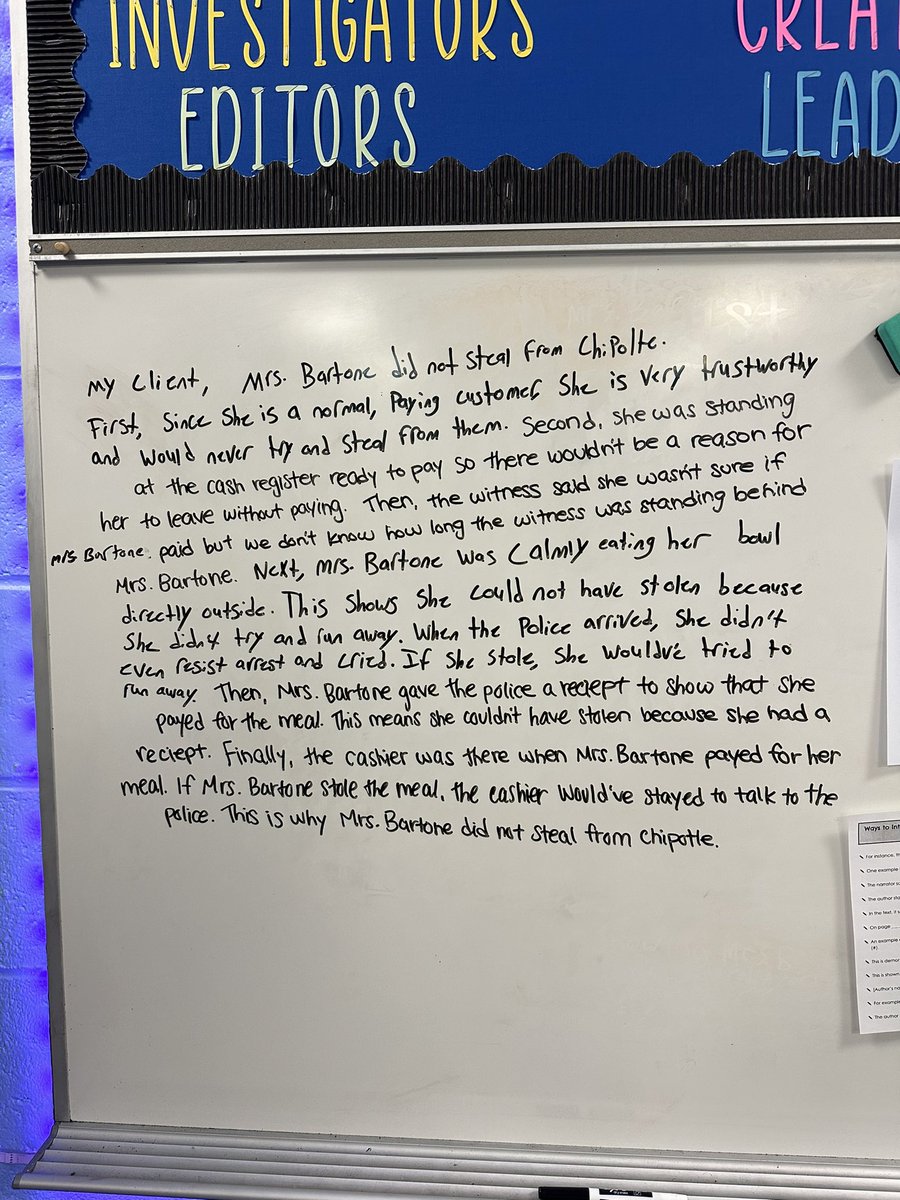 INVESTIGATORS
CREAT
EDITORS
LEAD
My Client, Mrs. Bartone did not Steal From Chipolte.
First, Since She is a normal, Paying customer, She is very trustworthy
and would never try and Steal From them. Second, she was standing
at the cash register ready to pay so there wouldn't be a reason for
her to leave without paying. Then, the witness said she wasn't sure if
Mrs. Bartone paid but we don't know how long the witness was standing behind
Mrs. Bartone. Next, Mrs. Bartone was Calmly eating her bowl
directly outside. This Shows She could not have stolen because
She didn't try and run away. When the Police arrived, She didn't
even resist arrest and cried. If She Stole, She wouldv'e tried to
run away. Then, Mrs. Bartone gave the police a reciept to show that she
payed for the meal. This means she couldn't have stolen because she had a
reciept. Finally, the cashier was there when Mrs. Bartone payed for her
meal. If Mrs. Bartone stole the meal, the cashier would've stayed to talk to the
police. This is why Mrs. Bartone did not steal from Chipotle.
Ways to Int
For instance, th
One example
The narrator s
The author sta
In the text, it s
On page
An example
(#).
This is demon
This is shown
(Author's na
For example
The author